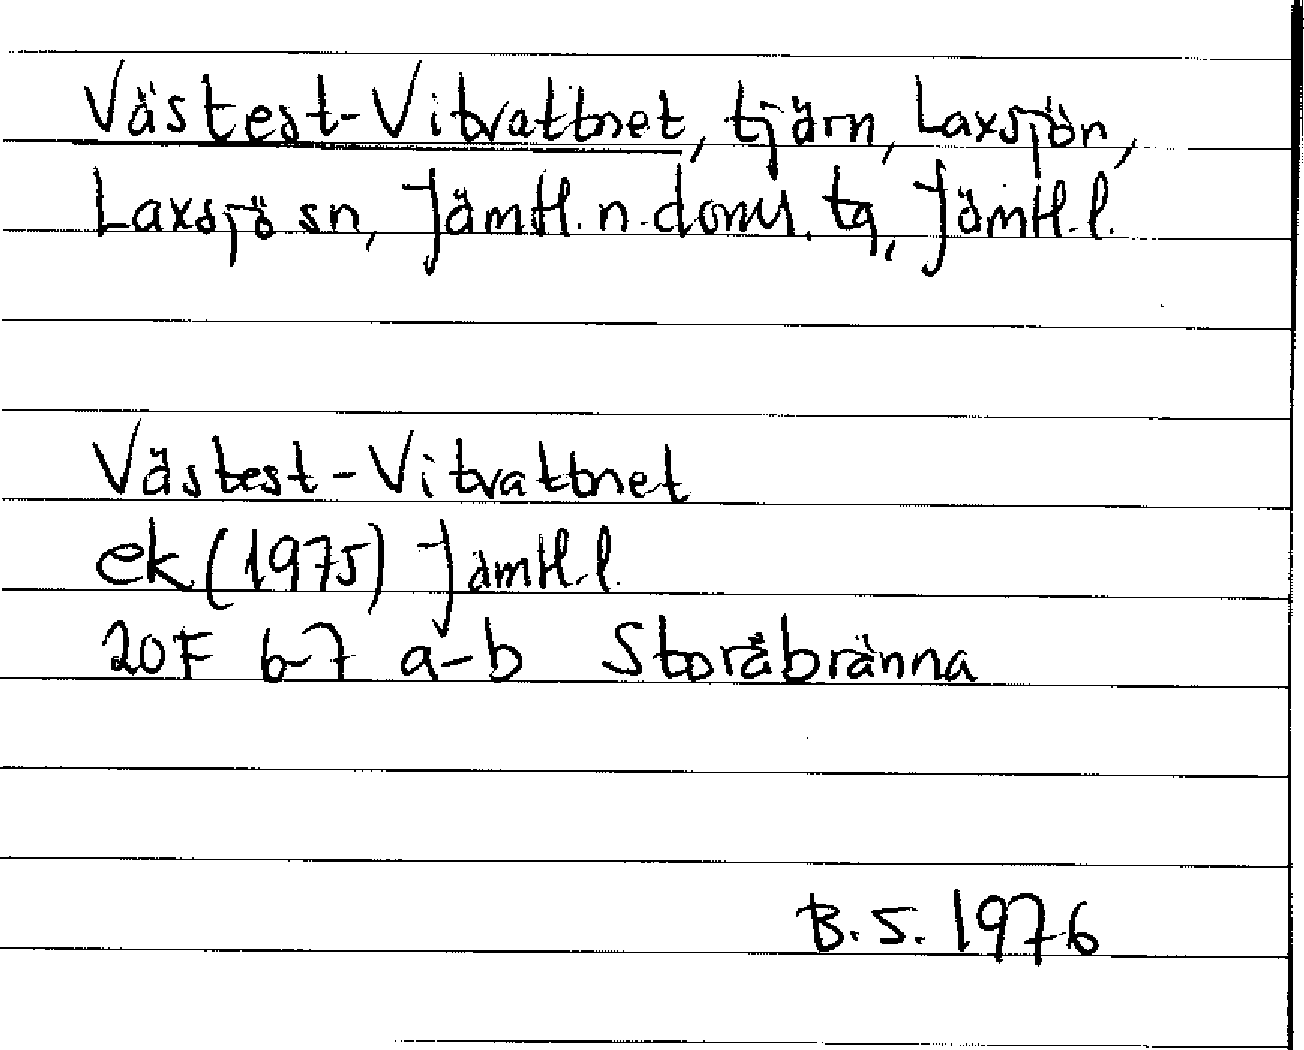 Västest-Vitvattnet, tjärn, Laxsjön,
Laxsjö sn, Jämtl. n. doms. tg, Jämtl. l.
Västest-Vitvattnet
ek (1975) Jämtl. l.
20F 6-7 a-b Storåbränna
B.S. 1976